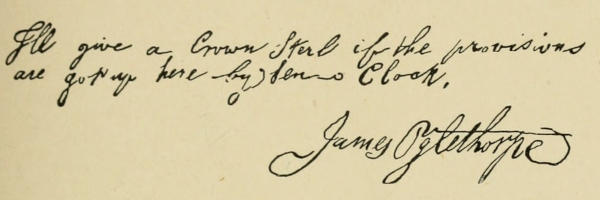 I'll give a Crown Sterl if the provisions
are got up here by ten o Clock.
James Oglethorpe